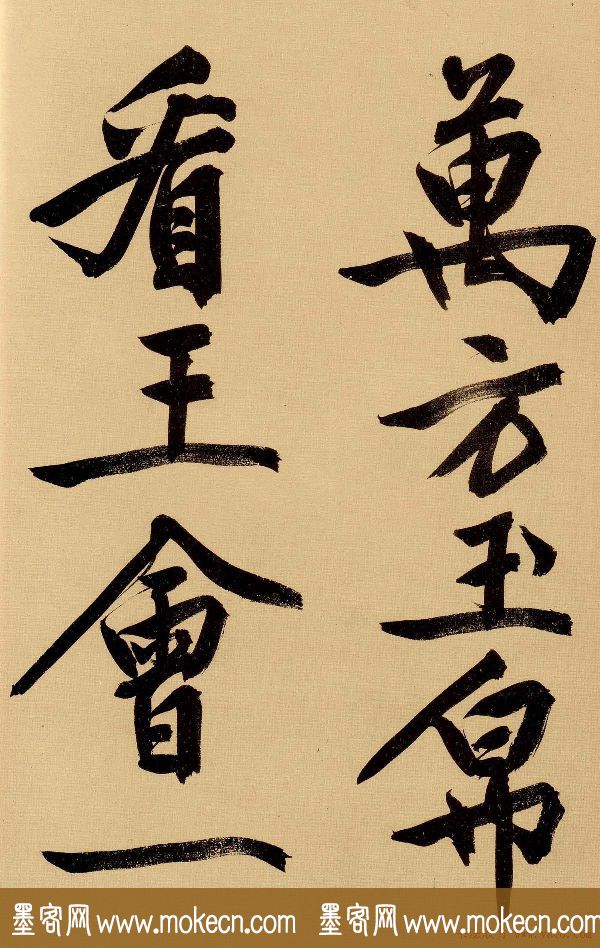 萬方玉帛
看王會一
墨客网 www.mokecn.com 墨客网 www.mokecn.com